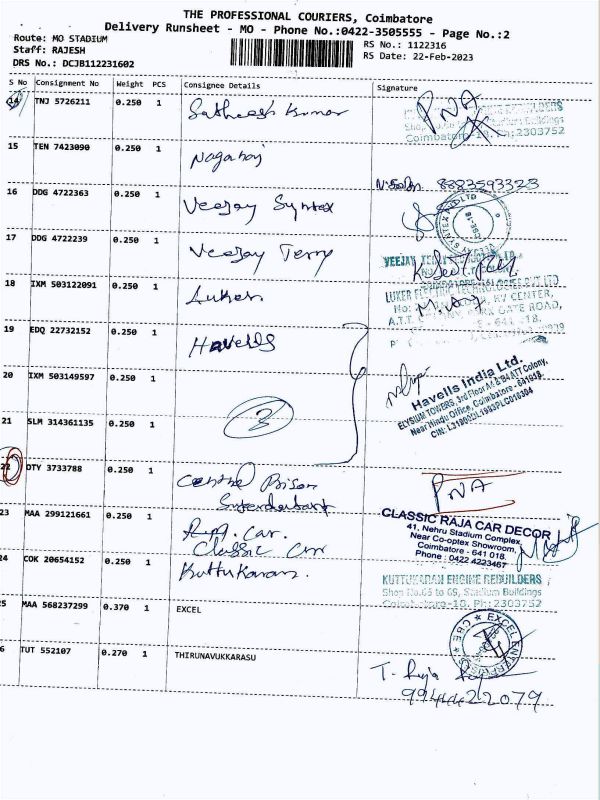 THE PROFESSIONAL COURIERS, Coimbatore
Delivery Runsheet - MO - Phone No.:0422-3505555 - Page No.:2
Route: MO STADIUM
Staff: RAJESH
DRS No.: DCJB112231602
RS No.: 1122316
RS Date: 22-Feb-2023
S No Consignment No Weight PCS Consignee Details Signature
14 TNJ 5726211 0.250 1 Satheesh Kumar PNA
Coimbatore-18. Ph:2303752
15 TEN 7423090 0.250 1 Nagaraj
8883593323
16 DDG 4722363 0.250 1 Veejay Syntex
17 DDG 4722239 0.250 1 Veejay Terry
VEEJAY
18 IXM 503122091 0.250 1 Luker
LUKER
RV CENTER,
GATE ROAD,
19 EDQ 22732152 0.250 1 Havells
20 IXM 503149597 0.250 1
Havells India Ltd.
ELYSIUM TOWERS, 3rd Floor A4 & B4 ATT Colony,
Near Hindu Office, Coimbatore - 641018.
21 SLM 314361135 0.250 1 3
22 DTY 3733788 0.250 1 Central Prison
PNA
23 MAA 299121661 0.250 1
Classic Car
CLASSIC RAJA CAR DECOR
41, Nehru Stadium Complex,
Near Co-optex Showroom,
Coimbatore - 641 018.
Phone : 0422 4223467
24 COK 20654152 0.250 1 Kuttukaran
KUTTUKARAN ENGINE REBUILDERS
Shop No.65 to 69, Stadium Buildings
Coimbatore-18. Ph: 2303752
25 MAA 568237299 0.370 1 EXCEL
EXCEL ENTERPRISES CBE
6 TUT 552107 0.270 1 THIRUNAVUKKARASU
T. Raja
9944422079